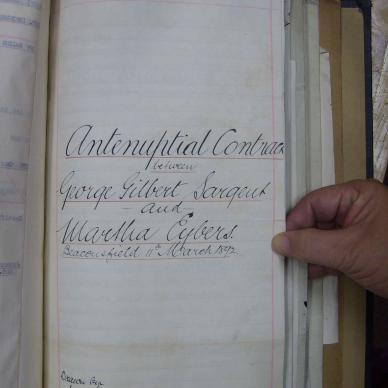 Antenuptial Contrac
between
George Gilbert Sargent
and
Martha Eybers.
Beaconsfield 11th March 1892.
Drawn by